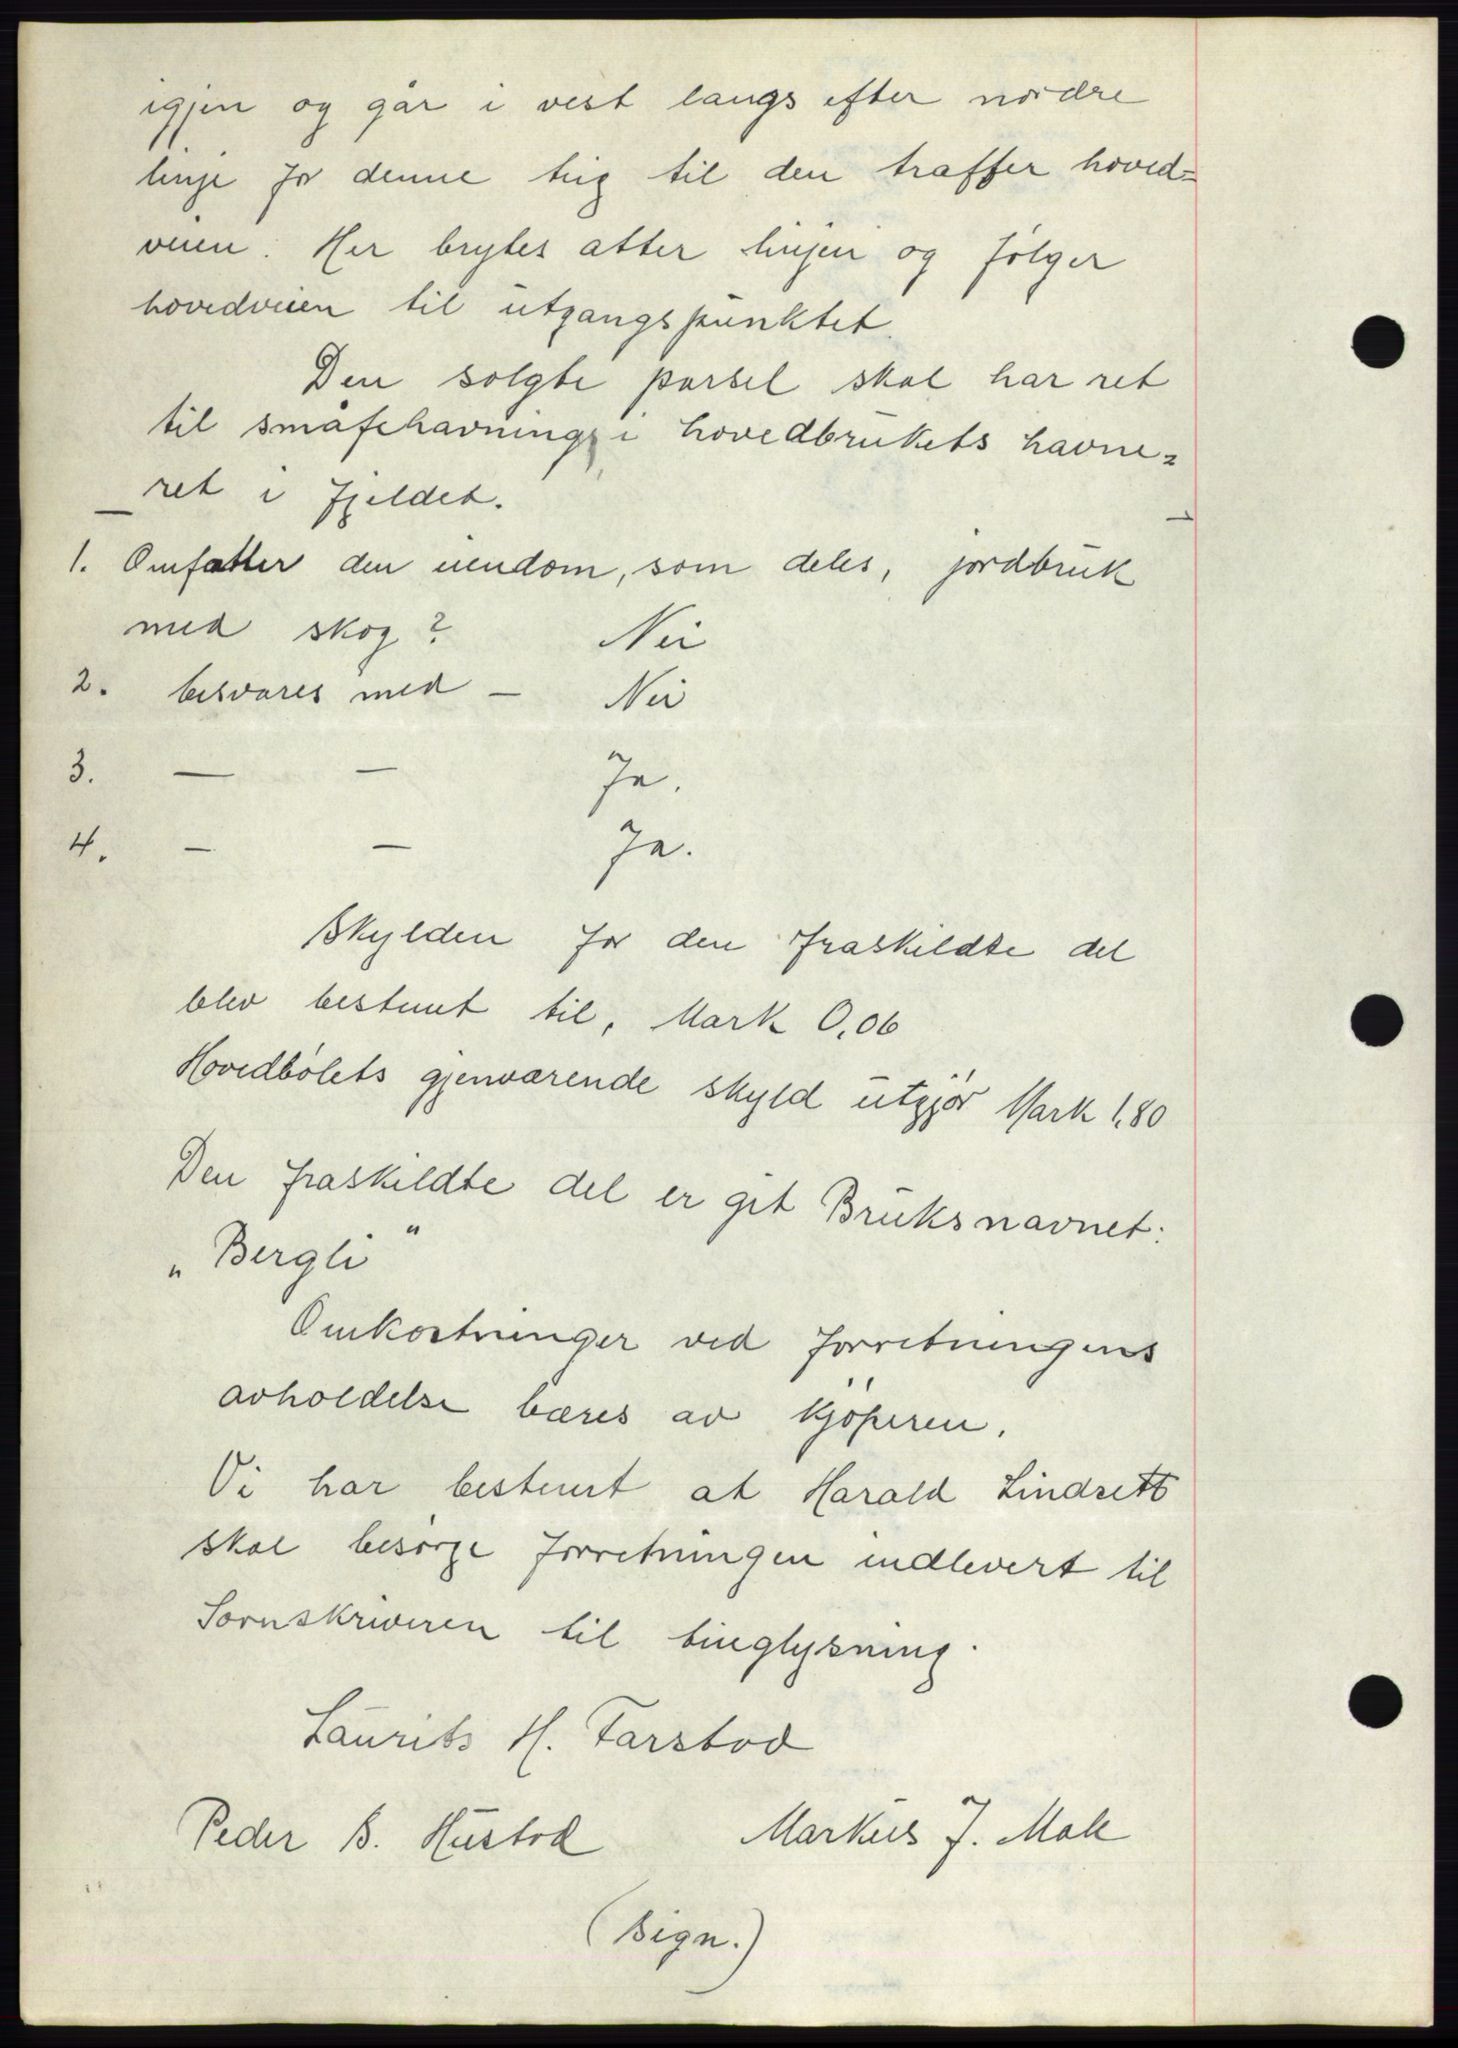 igjen og går i vest langs efter nordre
linje for denne teig til den træffer hoved=
veien. Her brytes atter linjen og følger
hovedveien til utgangspunktet.
Den solgte parsel skal har ret
til småfehavning i hovedbrukets havne=
ret i fjeldet.
1. Omfatter den eiendom, som deles, jordbruk
med skog? Nei
2. besvares med — Nei
3. — — Ja.
4. — — Ja.
Skylden for den fraskildte del
blev bestemt til, Mark 0,06
Hovedbølets gjenværende skyld utgjør Mark 1,80
Den fraskildte del er git Bruksnavnet:
„Bergli"
Omkostninger ved forretningens
avholdelse bæres av kjøperen.
Vi har bestemt at Harald Lindsett
skal besørge forretningen indlevert til
Sornskriveren til tinglysning.
Laurits H. Farstad
Peder B. Hustad Markus J. Male
(sign.)